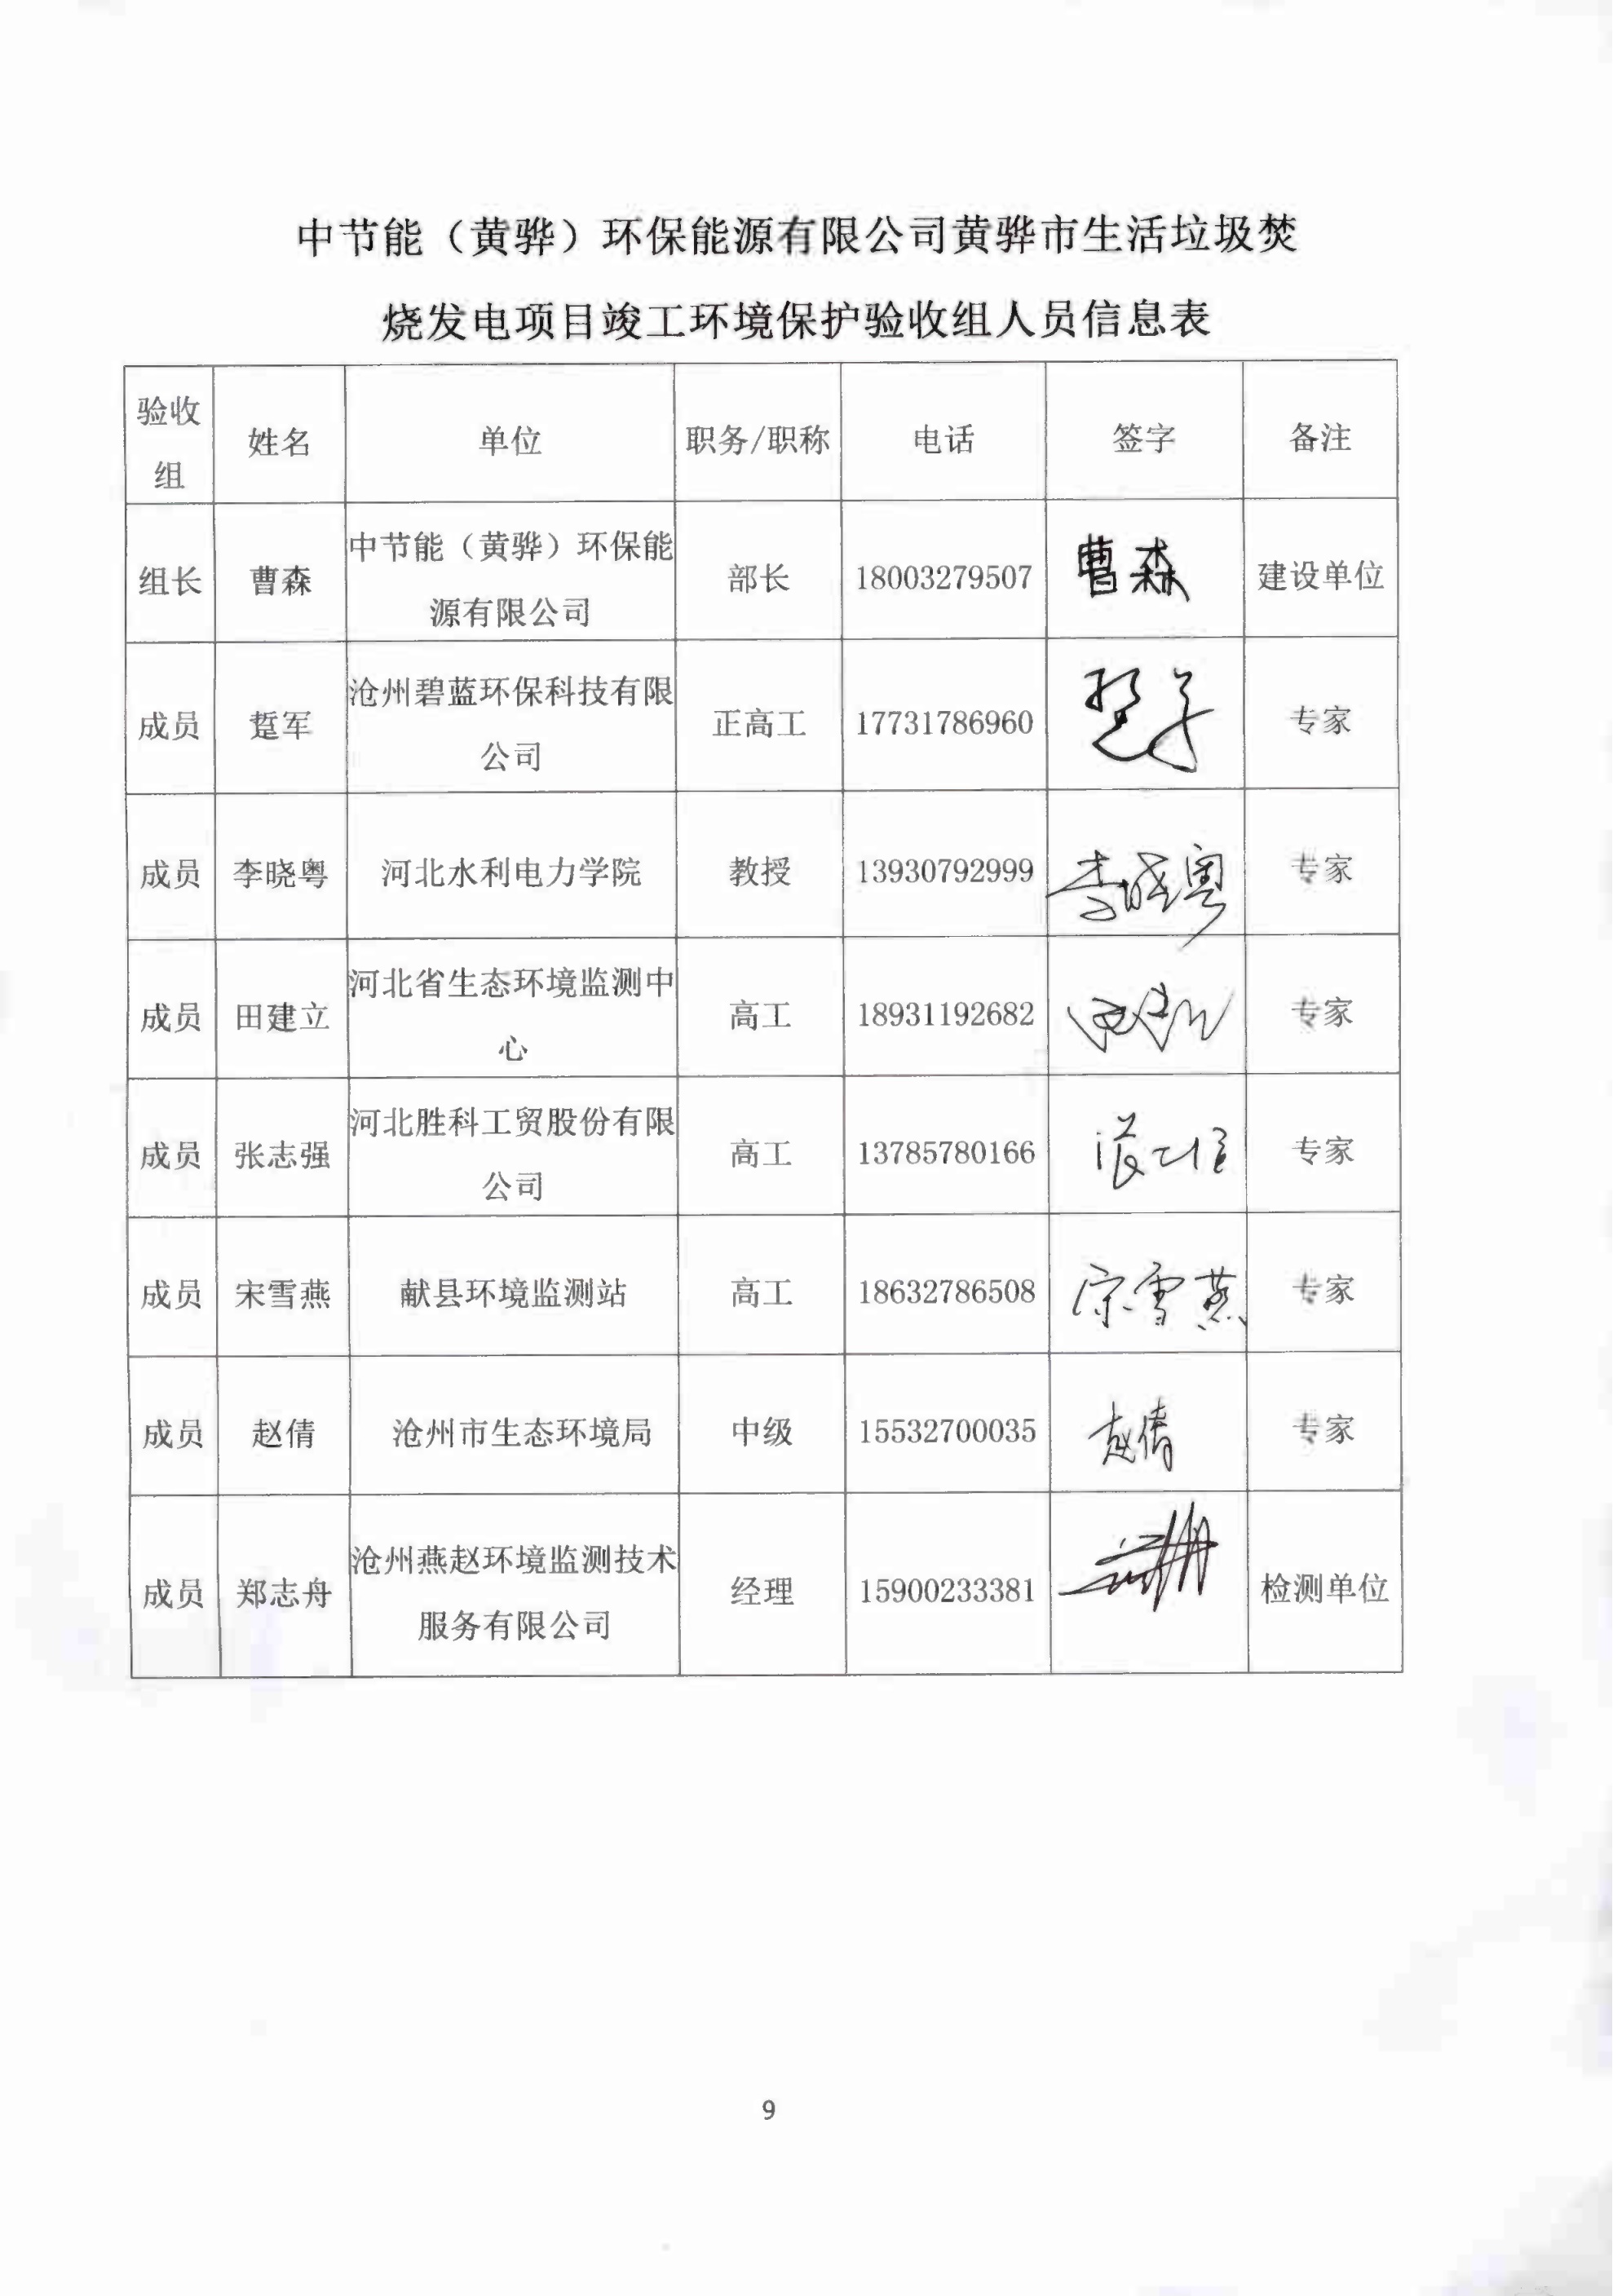 中节能（黄骅）环保能源有限公司黄骅市生活垃圾焚
烧发电项目竣工环境保护验收组人员信息表
验收
组
姓名
单位
职务/职称
电话
签字
备注
组长
曹森
中节能（黄骅）环保能
源有限公司
部长
18003279507
曹森
建设单位
成员
踅军
沧州碧蓝环保科技有限
公司
正高工
17731786960
专家
成员
李晓粤
河北水利电力学院
教授
13930792999
李晓粤
专家
成员
田建立
河北省生态环境监测中
心
高工
18931192682
田建立
专家
成员
张志强
河北胜科工贸股份有限
公司
高工
13785780166
专家
成员
宋雪燕
献县环境监测站
高工
18632786508
宋雪燕
专家
成员
赵倩
沧州市生态环境局
中级
15532700035
赵倩
专家
成员
郑志舟
沧州燕赵环境监测技术
服务有限公司
经理
15900233381
检测单位
9